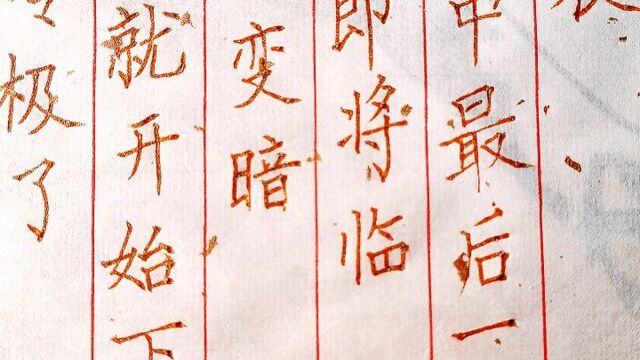 中最后一
即将临
变暗
就开始下
极了